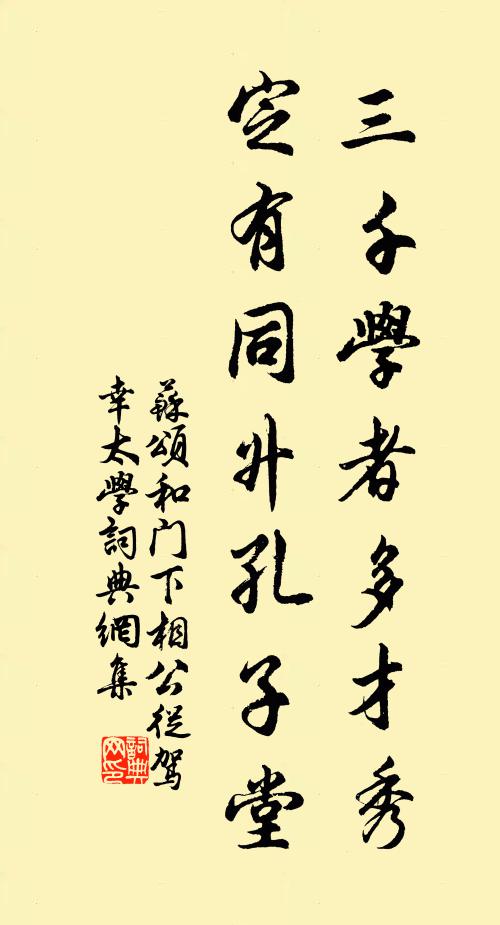 三千學者多才秀
定有同升孔子堂
蘇頌和门下相公從駕
幸太學詞典網集
詞典
网印